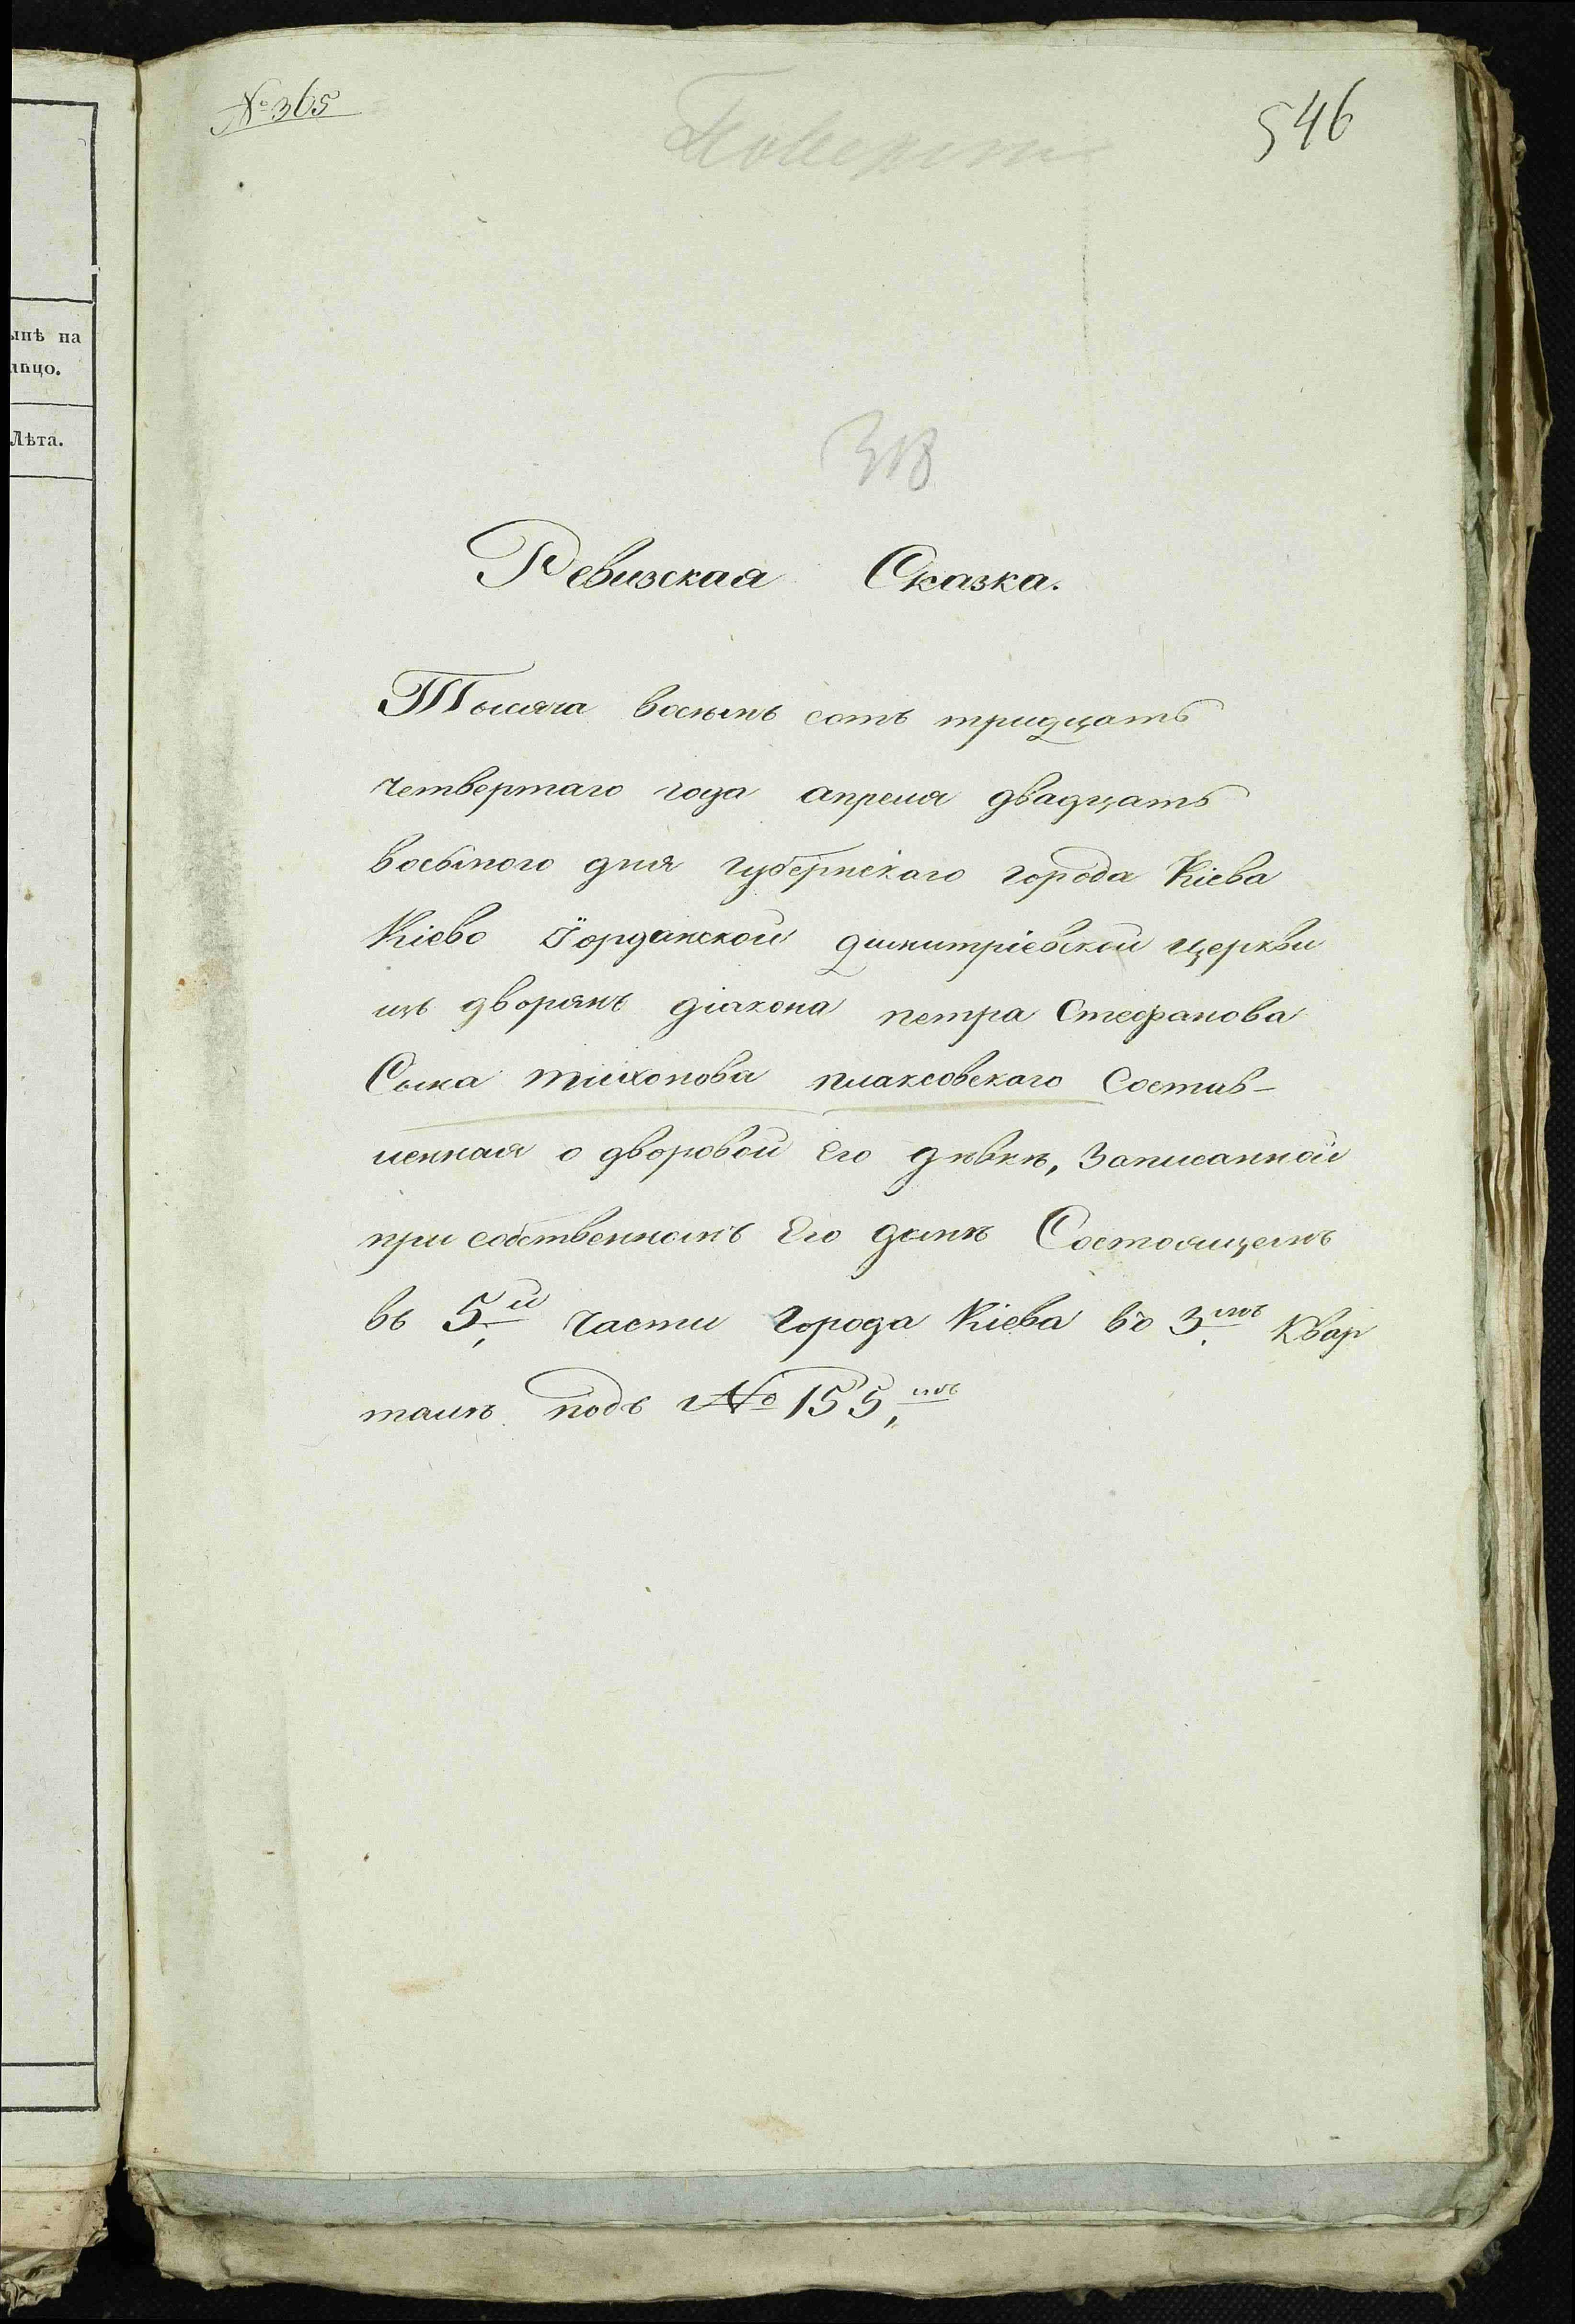 ынѣ на
лицо.
Лѣта.
№ 365
546
318
Ревизская Сказка.
Тысяча восемь сотъ тридцать
четвертаго года апреля двадцать
восьмого дня губернскаго города Кіева
Кіево Іорданской димитріевской церкви
изъ дворянъ діакона петра Стефанова
Сына тихонова плаксовскаго Состав-
ленная о дворовой Его дѣвкѣ, Записанной
при собственномъ Его домѣ Состоящемъ
въ 5,й части города Кіева во 3,мъ Квар
талѣ подъ № 155,мъ